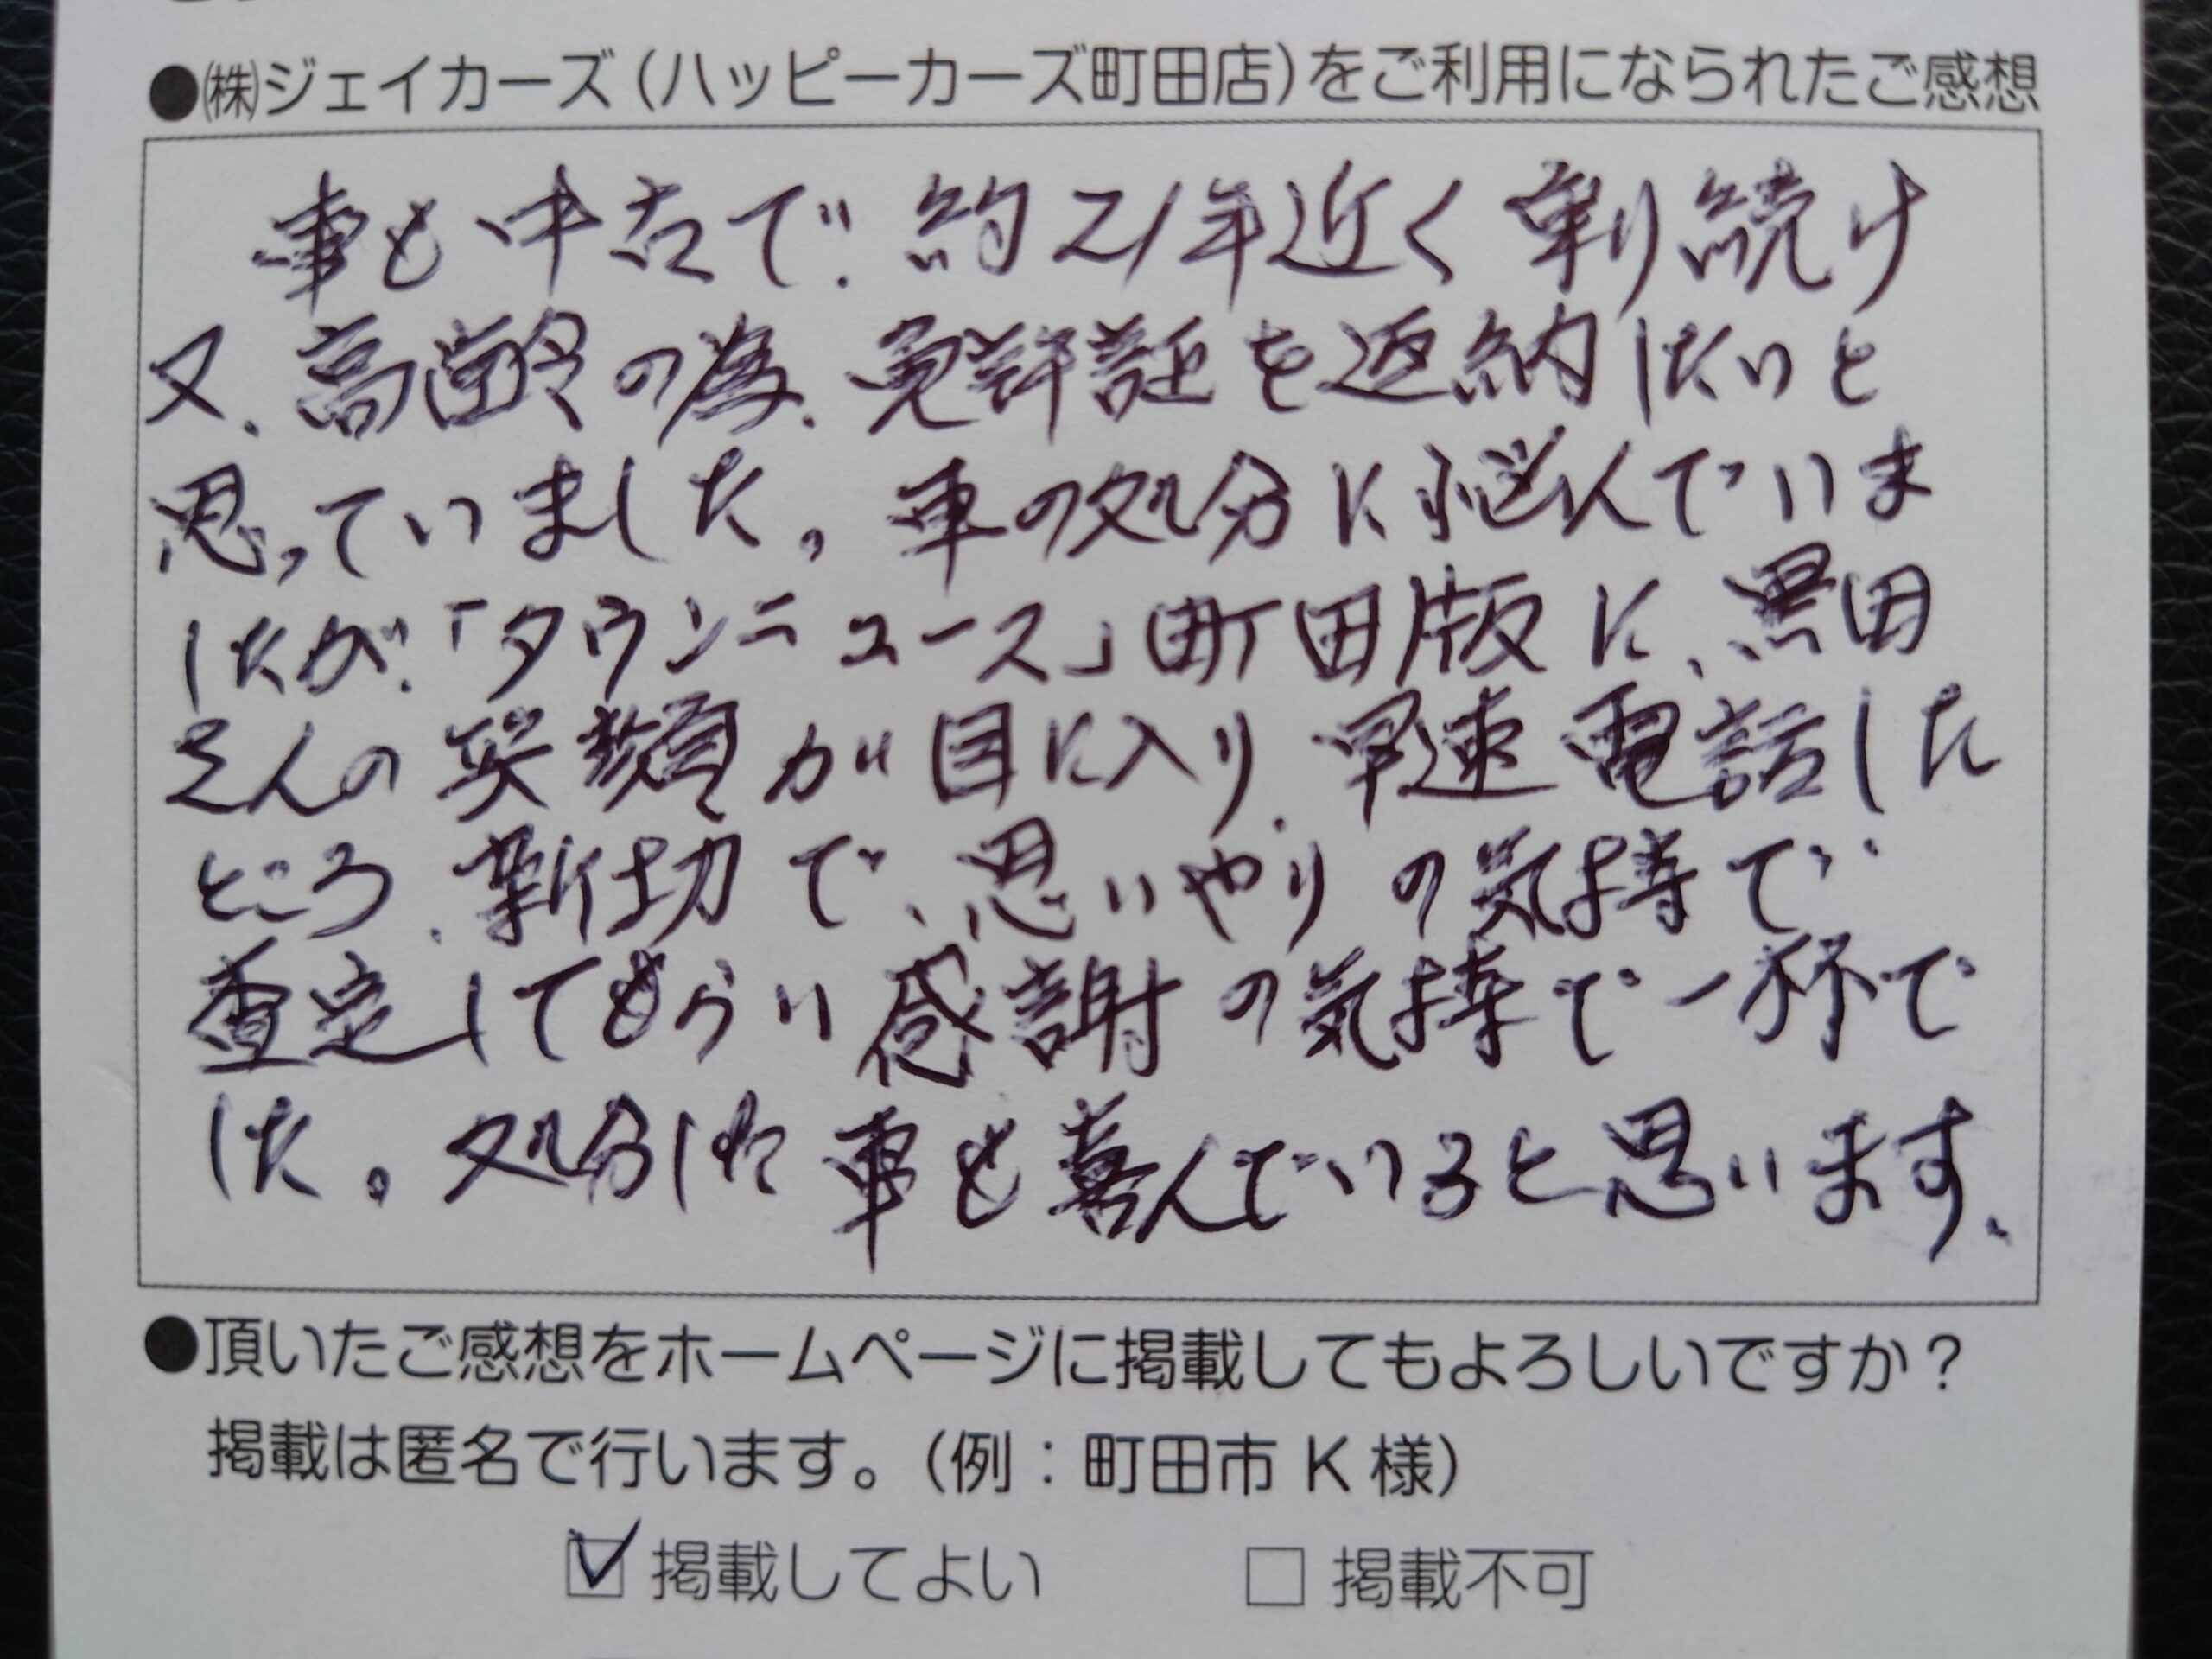 ●㈱ジェイカーズ（ハッピーカーズ町田店）をご利用になられたご感想
車も中古で、約21年近く乗り続け
又、高齢の為、免許証を返納したいと
思っていました。車の処分に悩んでいま
したが、「タウンニュース」町田版に、黒田
さんの笑顔が目に入り、早速電話した
ところ、親切で、思いやりの気持で
査定してもらい感謝の気持で一杯で
した。処分した車も喜んでいると思います、
●頂いたご感想をホームページに掲載してもよろしいですか？
掲載は匿名で行います。（例：町田市 K 様）
☑ 掲載してよい　□ 掲載不可